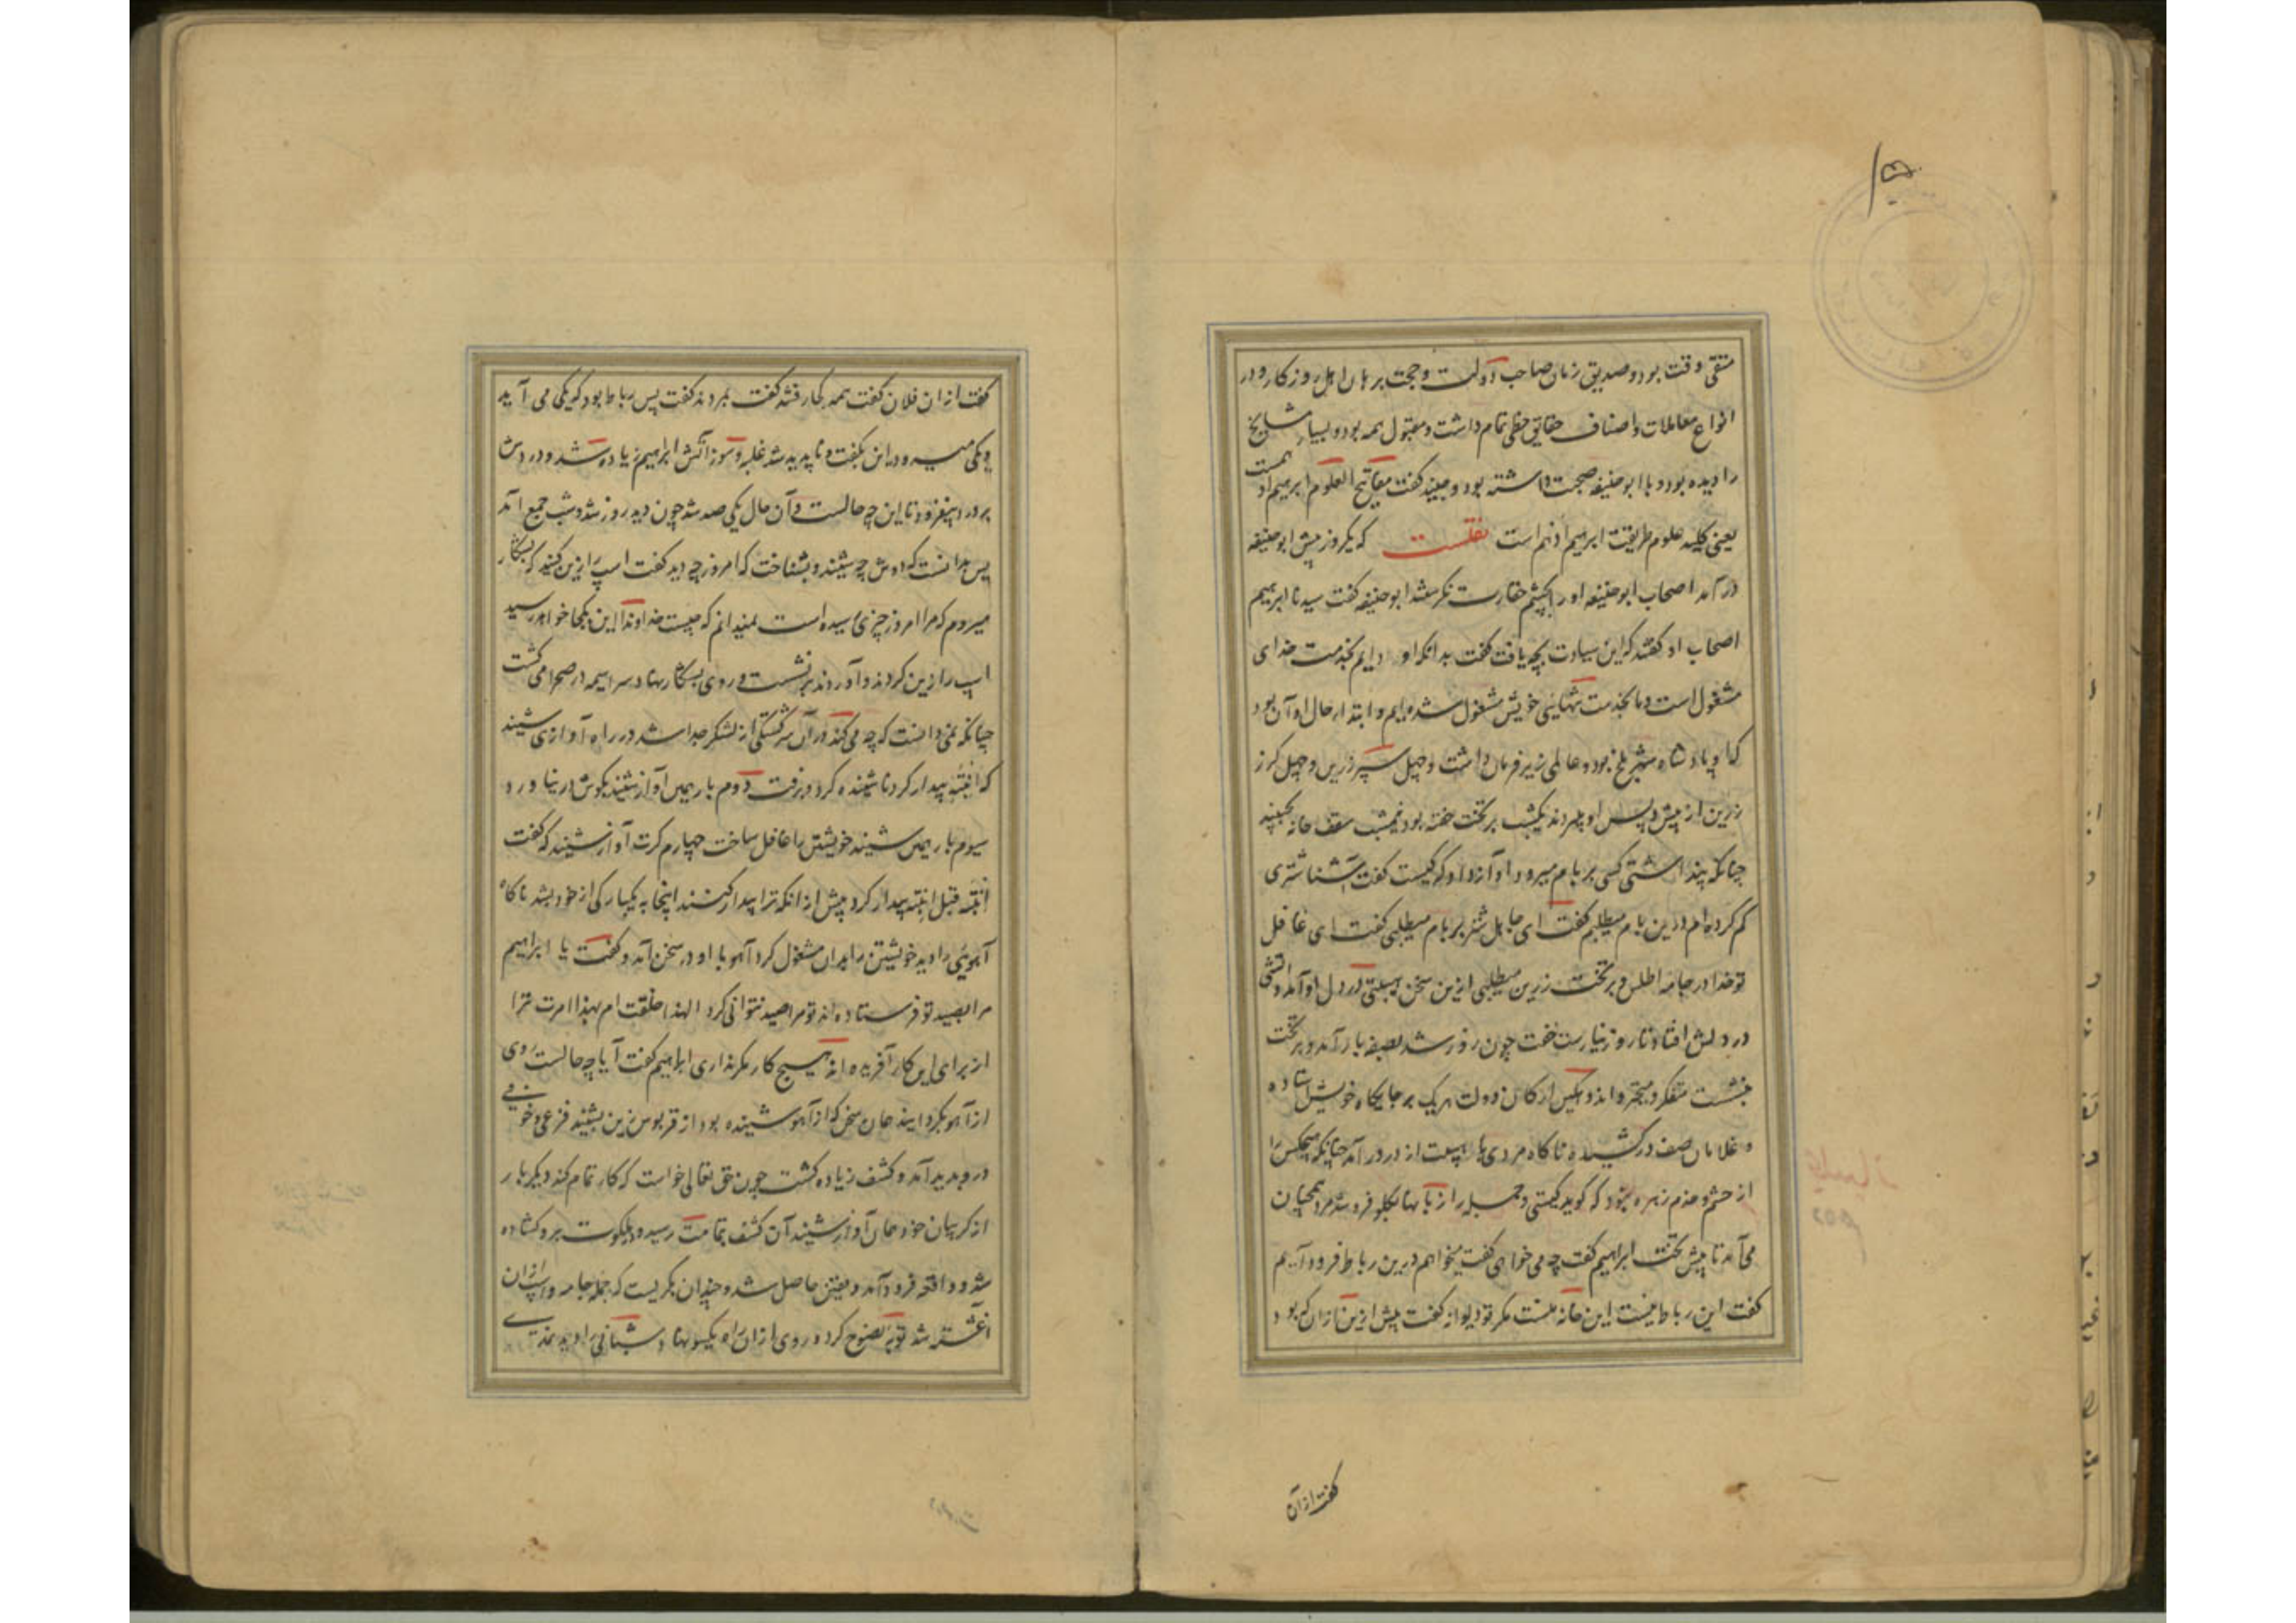 متقی وقت بود و صدیق زمان صاحب دولت و حجت برهان اهل روزکار و در
انواع معاملات و اصناف حقایق حظی تمام داشت و مقبول همه بود و بسیار مشایخ
را دیده بود و با ابوحنیفه صحبت داشته بود و جنید کفت مفاتیح العلوم ابرهیم ادهمست
یعنی کلید علوم طریقت ابرهیم ادهم است نقلست که یکروز پیش ابوحنیفه
درآمد اصحاب ابوحنیفه او را بچشم حقارت نکرستند ابوحنیفه کفت سیدنا ابرهیم
اصحاب او کفتند که این سیادت بچه یافت کفت بدانکه او دایم بخدمت خدای
مشغول است و ما بخدمت تنهاییی خویش مشغول شده‌ایم و ابتدا حال او آن بود
که او پادشاه شهر بلخ بود و عالمی زیر فرمان داشت و چهل سپر زرین و چهل کرز
زرین از پیش و پس او میبردند یکشب بر تخت خفته بود نیمشب سقف خانه بجنبید
چنانکه پنداشتی کسی بر بام میرود آواز داد که کیست کفت آشنا شتری
کم کرده‌ام درین بام میطلبم کفت ای جاهل شتر بر بام میطلبی کفت ای غافل
تو خدا در جامه اطلس و بر تخت زرین میطلبی ازین سخن هیبتی در دل او آمد و آتشی
در دلش افتاد تا روز نیارست خفت چون روز شد بصفه بار آمد و بر تخت
بنشست متفکر و متحیر و اندوهکین ارکان دولت هریک بر جایکاه خویش ایستاده
و غلامان صف درکشیده ناکاه مردی با هیبت از در درآمد چنانکه هیچکس را
از حشم و خدم زهره نبود که کوید کیستی و جمله را زبانها بکلو فرو شد مرد همچنان
می‌آمد تا پیش تخت ابراهیم کفت چه می‌خواهی کفت میخواهم درین رباط فرود آیم
کفت این رباط نیست این خانه منست مکر تو دیوانه کفت پیش ازین از آن که بود
کفت از آن
کفت از ان فلان کفت همه کجا رفتند کفت بمردند کفت پس رباط بود که یکی می آید
و یکی میرود این بکفت و ناپدید شد غلبه و سوز آتش ابراهیم زیاده شد و دردش
بر درد بیفزود تا این چه حالست و آن حال یکی صد شد چون دید روز شد و شب جمع آمد
پس بدانست که دوش چه شنید و بشناخت که امروز چه دید کفت اسپ را زین کنید که بشکار
میروم که مرا امروز چیزی رسیده است نمیدانم که چیست خداوندا این بکجا خواهد رسید
اسپ را زین کردند و آوردند برنشست و روی بشکار نهاد سراسیمه در صحرا می کشت
چنانکه نمی‌دانست که چه می‌کند در آن سرکشتکی از لشکر جدا شد در راه آوازی شنید
که انتبه بیدار کرد ناشنیده کرد و برفت دوم بار همین آواز شنید بکوش در نیاورد
سیوم بار همین شنید خویشتن را غافل ساخت چهارم کرت آواز شنید که کفت
انتبه قبل انتبه بیدار کرد پیش از انکه ترا بیدار کنند اینجا به یکبارکی از خود بشد ناکاه
آهویی را دید خویشتن را بدان مشغول کرد آهو با او در سخن آمد و کفت یا ابراهیم
مرا بصید تو فرستاده‌اند تو مرا صید نتوانی کرد الهذا خلقت ام بهذا امرت ترا
از برای این کار آفریده اند هیچ کار دیکر نداری ابراهیم کفت آیا چه حالست روی
از آهو بکردانید همان سخن که از آهو شنیده بود از قربوس زین بشنید فزعی و خوفی
در و پدید آمد و کشف زیاده کشت چون حق تعالی خواست که کار تمام کند دیکر بار
از کریبان خود همان آواز شنید آن کشف بتمامت رسید و ملکوت برو کشاده
شد و واقعه فرود آمد و یقین حاصل شد و چندان بکریست که جمله جامه و اسپ از ان
آغشته شد توبه نصوح کرد و روی از ان راه یکسو نهاد و شبانی را دید نمدی